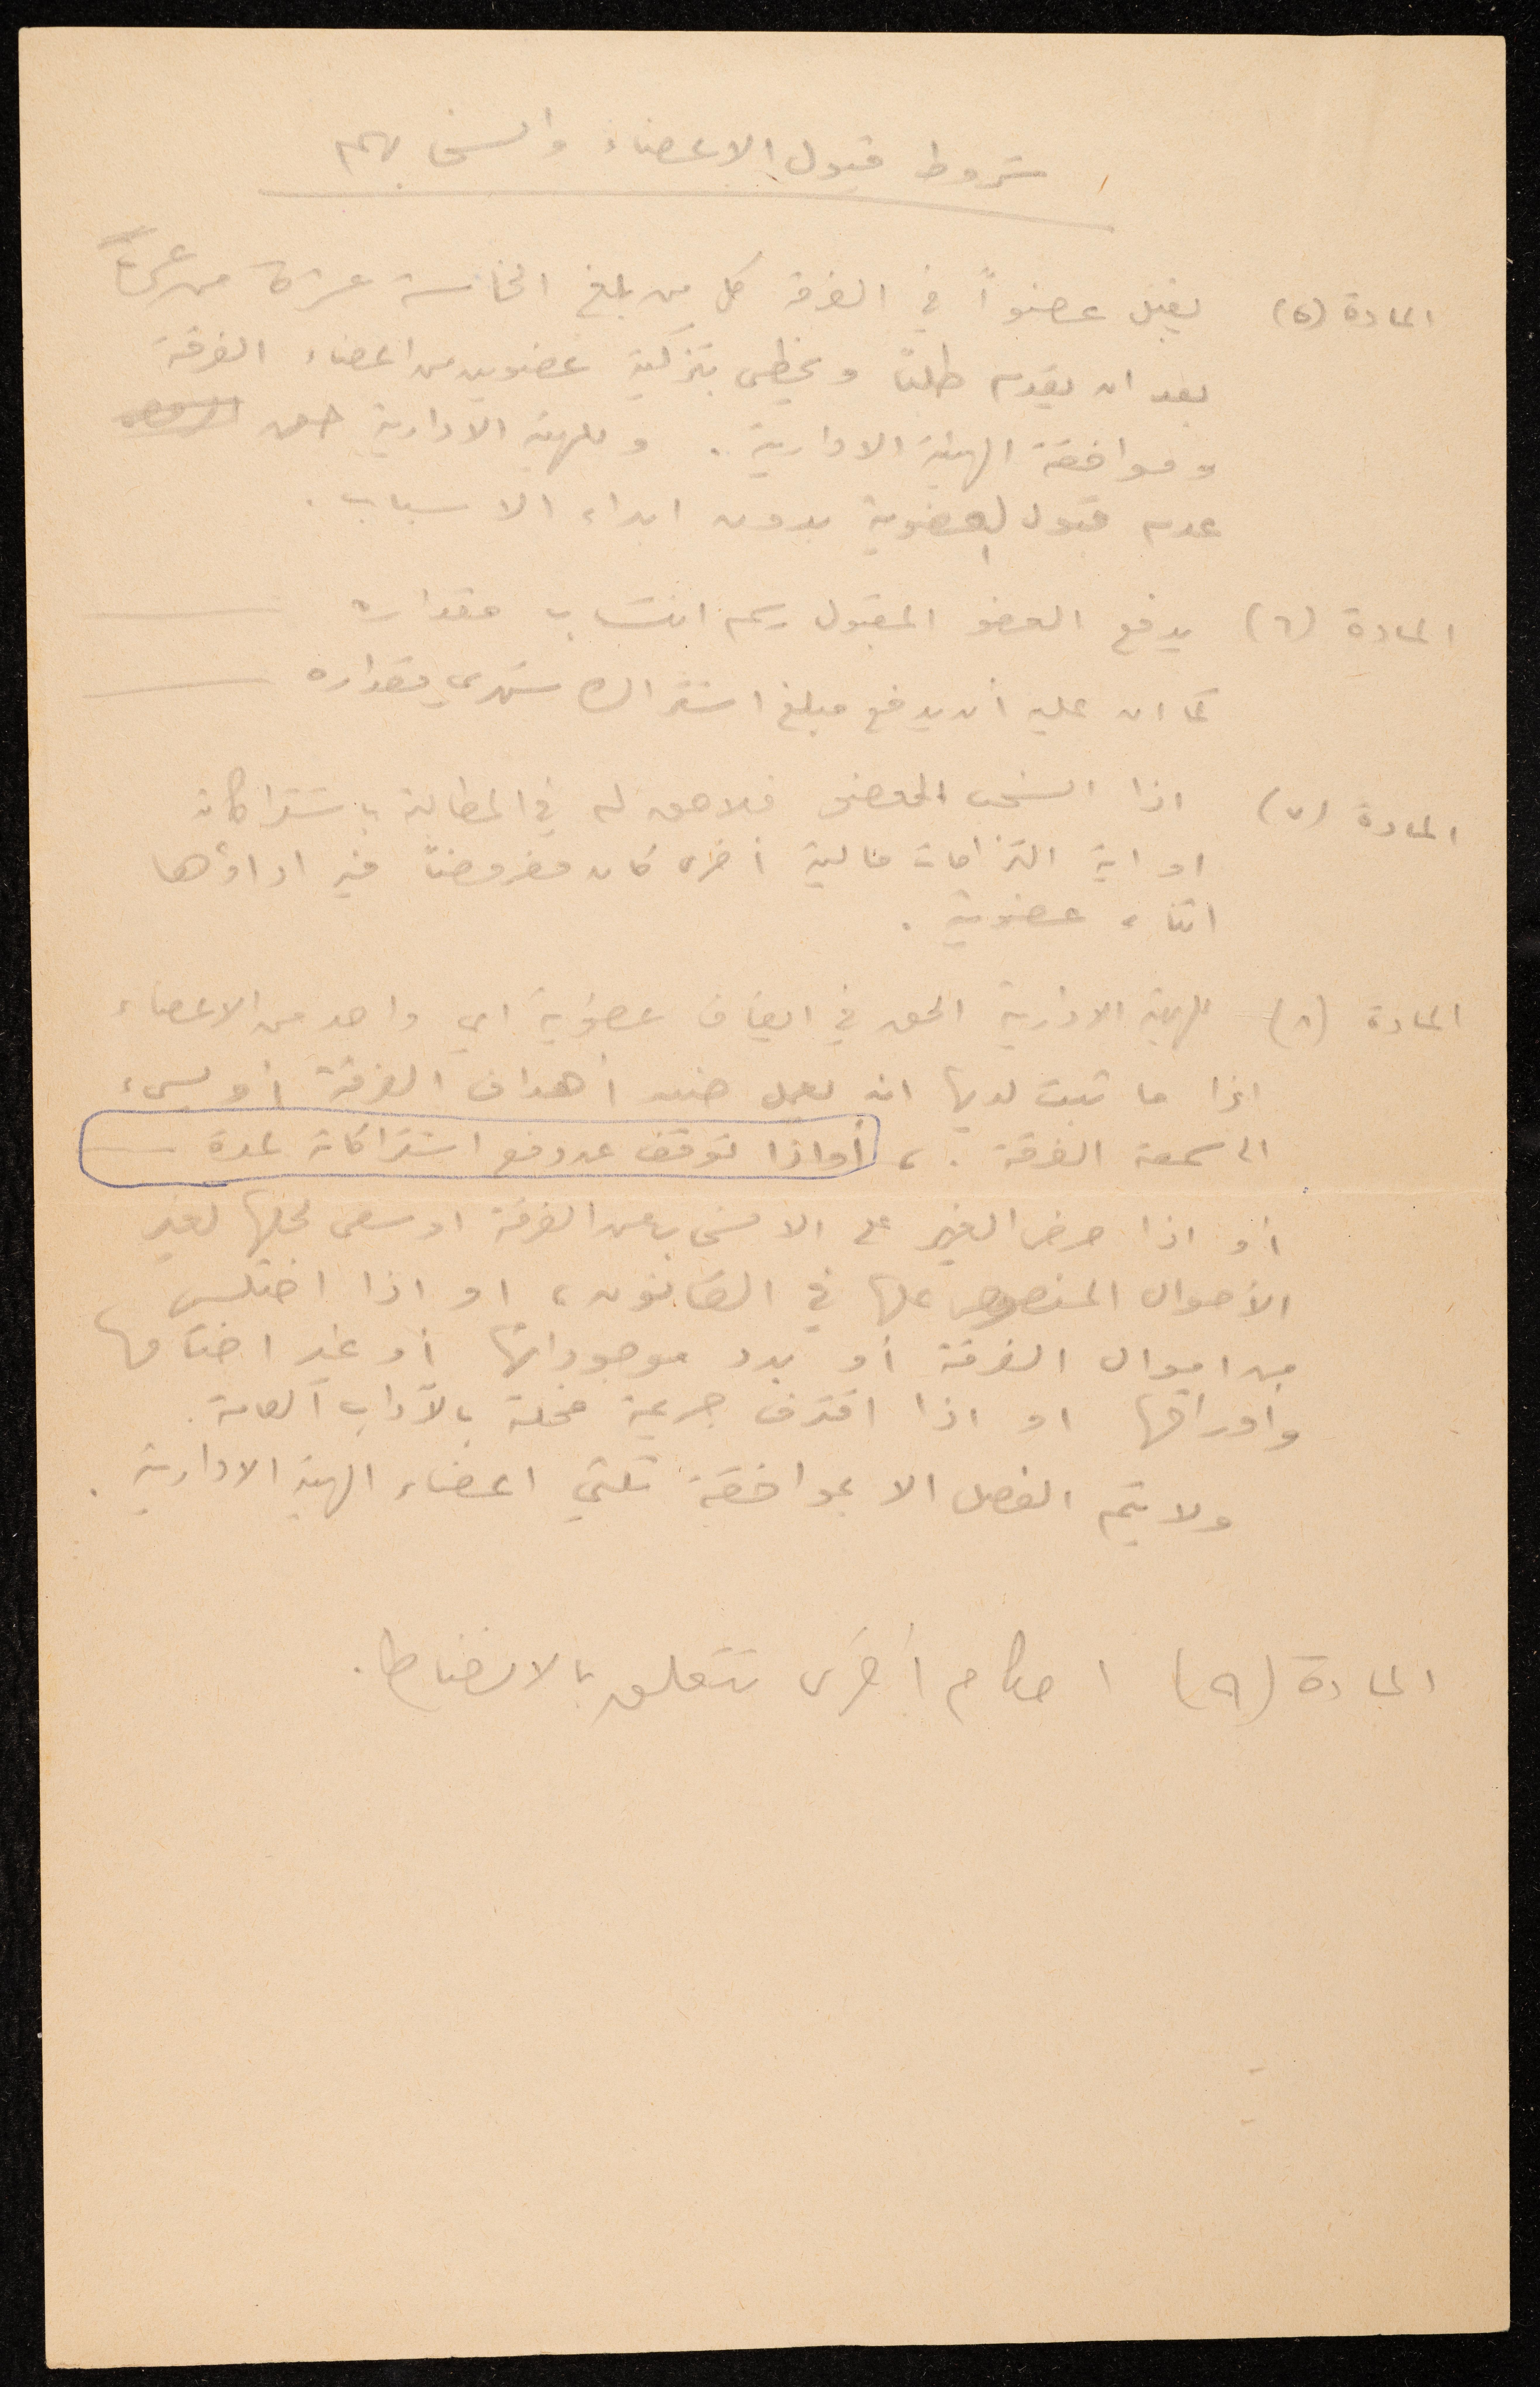 شروط قبول الاعضاء وانسحابهم
المادة (٥) يقبل عضواً في الفرقة كل من بلغ الخامسة عشرة من عمره
بعد ان يقدم طلباً ويحظى بتزكية عضوين من اعضاء الفرقة
وموافقة الهيئة الادارية . وللهيئة الادارية حق
عدم قبول العضوية بدون ابداء الاسباب .
المادة (٦) يدفع العضو المقبول رسم انتساب مقداره
كما ان عليه أن يدفع مبلغ اشتراك شهري مقداره
المادة (٧) اذا انسحب العضو فلا حق له في المطالبة باشتراكاته
او اية التزامات مالية أخرى كان مفروضاً فيه اداؤها
اثناء عضويته .
المادة (٨) للهيئة الادارية الحق في ايقاف عضوية اي واحد من الاعضاء
اذا ما ثبت لديها انه يعمل ضد أهداف الفرقة أو يسيء
الى سمعة الفرقة . ، أو اذا توقف عن دفع اشتراكاته لمدة
أو اذا حرض الغير على الانسحاب من الفرقة او سعى لحلها لغير
الأحوال المنصوص عليها في القانون ، او اذا اختلس
من اموال الفرقة أو بدد موجوداتها أو غير اختامها
وأوراقها او اذا اقترف جريمة مخلة بالآداب العامة .
ولا يتم الفصل الا بموافقة ثلثي اعضاء الهيئة الادارية .
المادة (٩) احكام أخرى تتعلق بالانضباط .